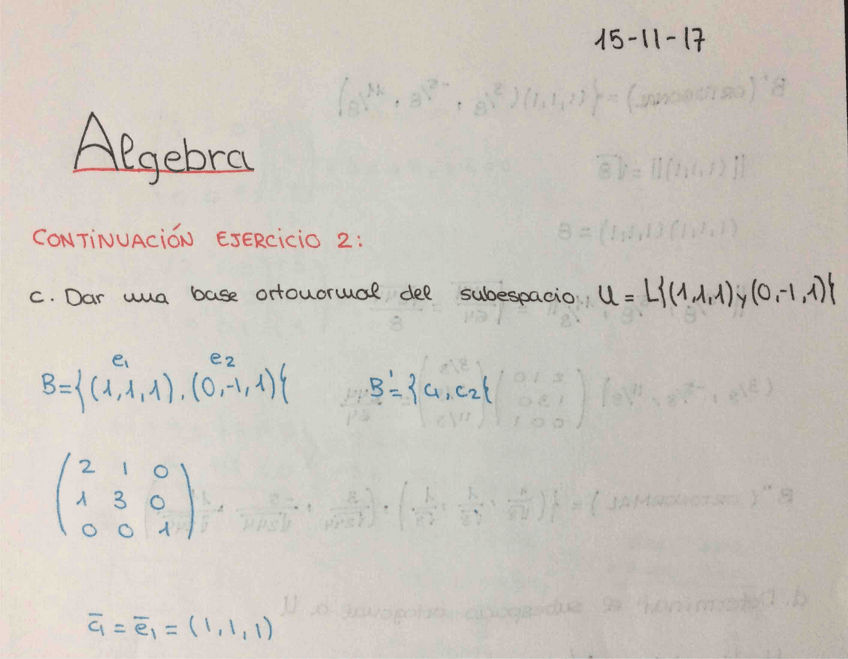 15-11-17
Algebra
CONTINUACIÓN EJERCICIO 2:
c. Dar una base ortonormal del subespacio U = L{(1,1,1) y (0,-1,1)}
e₁ e₂
B={(1,1,1), (0,-1,1)} B'={c₁, c₂}
2 1 0
1 3 0
0 0 1
c̄₁ = ē₁ = (1,1,1)